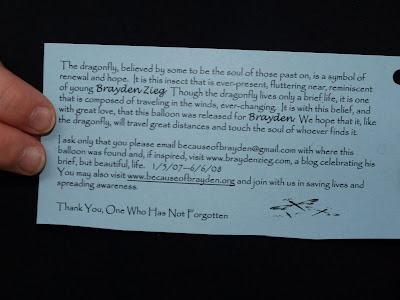 The dragonfly, believed by some to be the soul of those past on, is a symbol of
renewal and hope. It is this insect that is ever-present, fluttering near, reminiscent
of young Brayden Zieg. Though the dragonfly lives only a brief life, it is one
that is composed of traveling in the winds, ever-changing. It is with this belief, and
with great love, that this balloon was released for Brayden. We hope that it, like
the dragonfly, will travel great distances and touch the soul of whoever finds it.
I ask only that you please email becauseofbrayden@gmail.com with where this
balloon was found and, if inspired, visit www.braydenzieg.com, a blog celebrating his
brief, but beautiful, life. 1/5/07–6/6/08
You may also visit www.becauseofbrayden.org and join with us in saving lives and
spreading awareness.
Thank You, One Who Has Not Forgotten